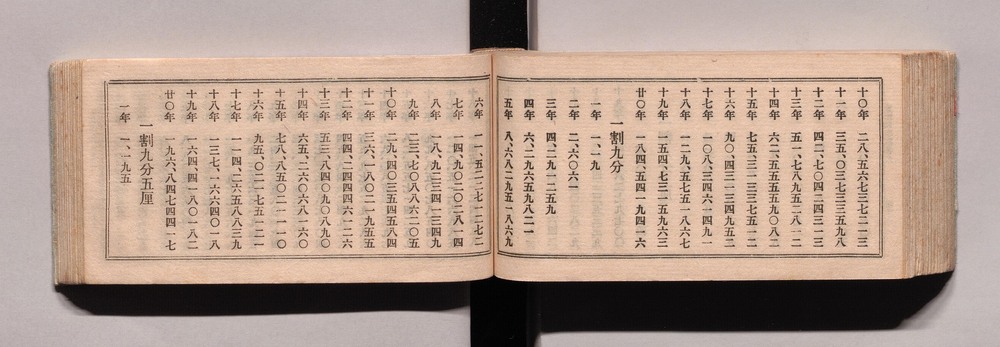 十〇年 二八、五六七三七二一三
十一年 三五、〇三七三三五九八
十二年 四二、七〇四二四三一三
十三年 五一、七八九五二八一二
十四年 六二、五五五五九〇八二
十五年 七五、三一三三七五一二
十六年 九〇、四三一三四九五二
十七年 一〇八、三四六一四九一
十八年 一二九、五七五一八六七
十九年 一五四、七三一五九六三
廿〇年 一八四、五四一九四一六
一割九分
一年 一、一九
二年 二、六〇六一
三年 四、二九一二五九
四年 六、二九六五九八二一
五年 八、六八二九五一八六九
六年 一一、五二二七一二七二
七年 一四、九〇二〇二八一四
八年 一八、九二三四一三四九
九年 二三、七〇八八六二〇五
十〇年 二九、四〇三五四五八四
十一年 三六、一八〇二一九五五
十二年 四四、二四四四六一二六
十三年 五三、八四〇九〇八九〇
十四年 六五、二六〇六八一六〇
十五年 七八、八五〇二一一一〇
十六年 九五、〇二一七五一二一
十七年 一一四、二六五八八三九
十八年 一三七、一六六四〇一八
十九年 一六四、四一八〇一八二
廿〇年 一九六、八四七四四一七
一割九分五厘
一年 一、一九五